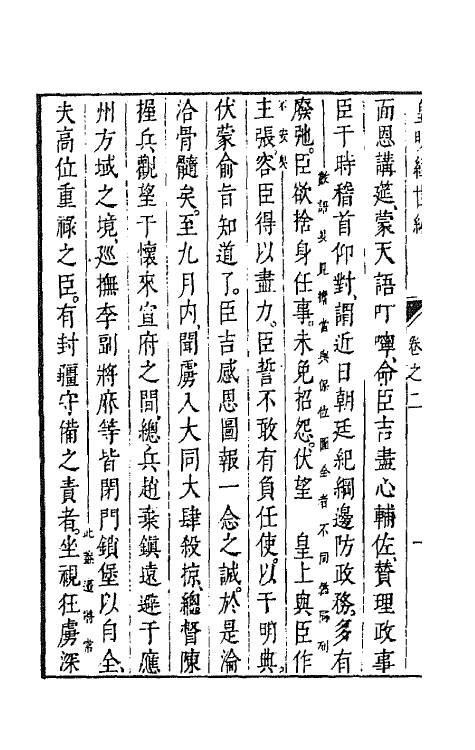 皇明經世編
卷之二
一
而恩講筵、蒙天語叮嚀、命臣吉盡心輔佐、贊理政事
臣于時稽首仰對、謂近日朝廷紀綱邊防政務、多有
廢弛。臣欲捨身任事。未免招怨。伏望 皇上與臣作
數語其見擔當與保位圖全者不同
主張。容臣得以盡力。臣誓不敢有負任使。以干明典、
伏蒙俞旨知道了。臣吉感恩圖報一念之誠。於是淪
洽骨髓矣。至九月内、聞虜入大同大肆殺掠、總督陳
握兵觀望于懷來宣府之間、總兵趙乘鎮遠避于應
州方域之境、廵撫李副將麻等皆閉門鎖堡以自全、
夫高位重祿之臣。有封疆守備之責者。坐視狂虜深